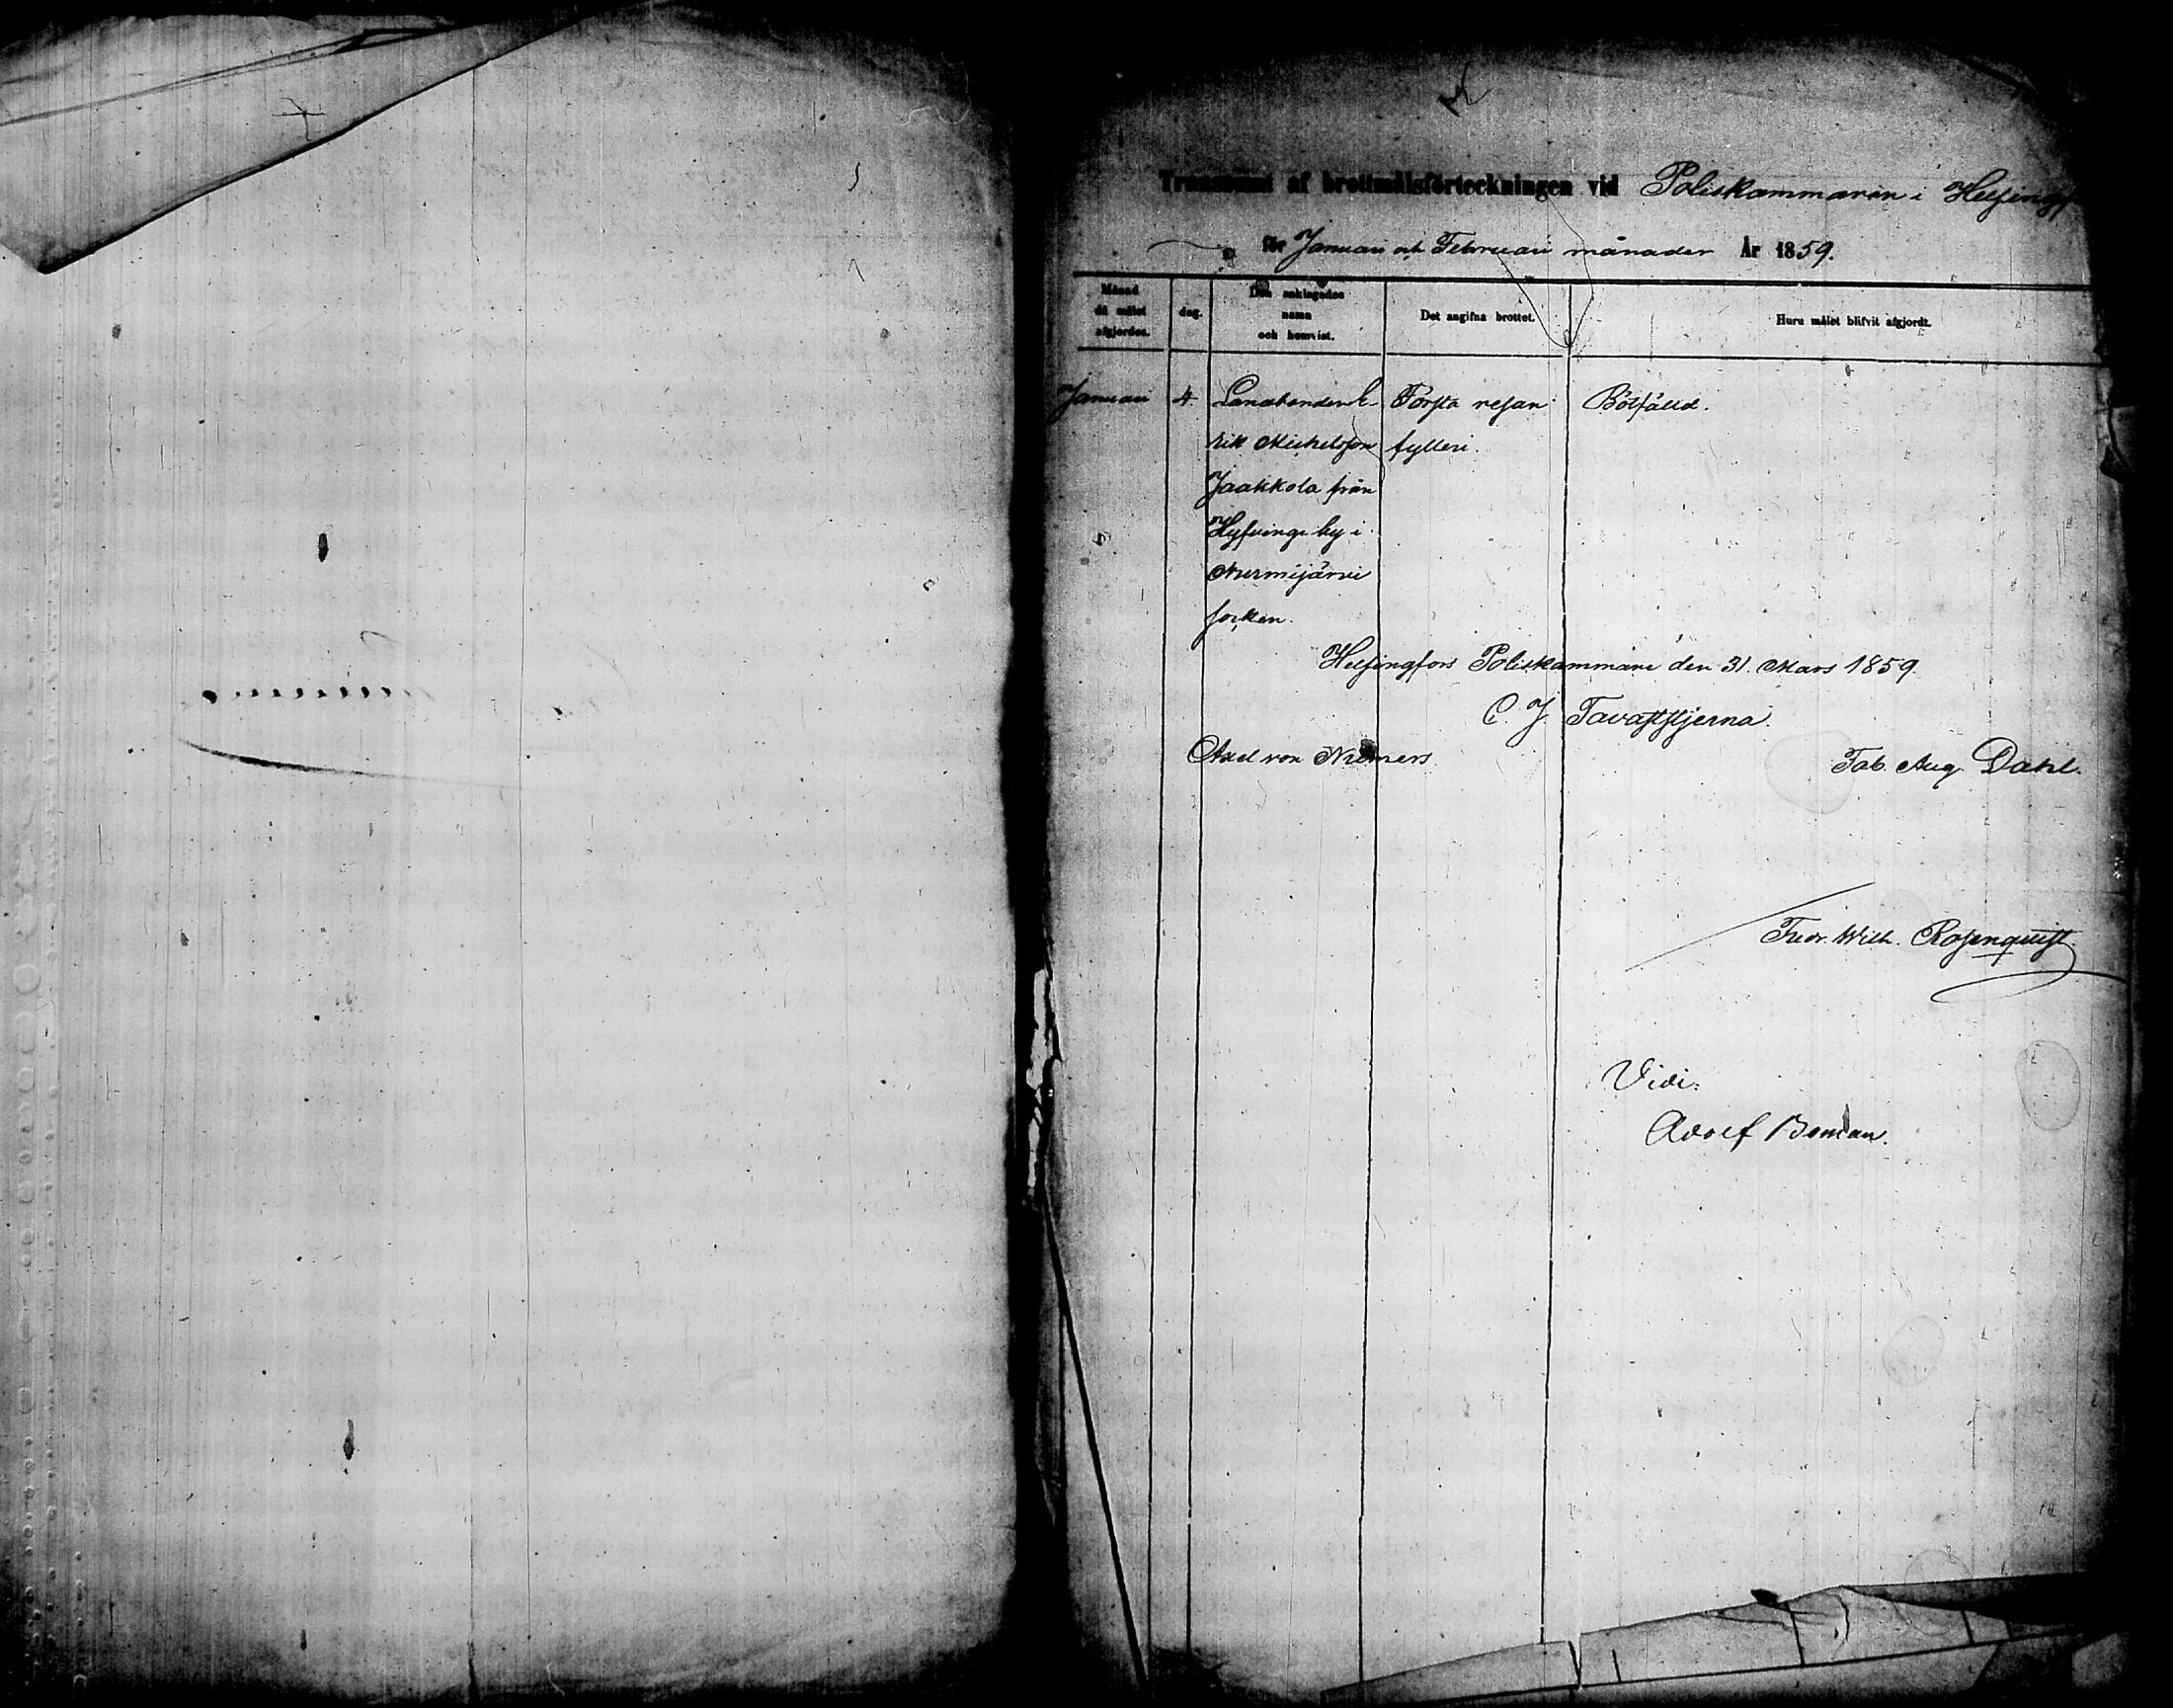 Transsumt af brottmålsförteckningen vid Poliskammaren i Helsingf
för Januari och Februari månader År 1859.
Månad då målet afgjordes.
dag.
Den anklagades namn och hemvist.
Det angifna brottet.
Huru målet blifvit afgjordt.
Januari 4. Landbonden E- Första resan Bötfälld.
rik Michelsson fylleri.
Jaakkola från
Hyfvinge by i
Nurmijärvi
socken.
Helsingfors Poliskammare den 31. Mars 1859.
C. J. Tavaststjerna.
Axel von
Fab. Aug. Dahl.
Fredr. Wilh. Rosenquist.
Vidi:
Adolf Boman.